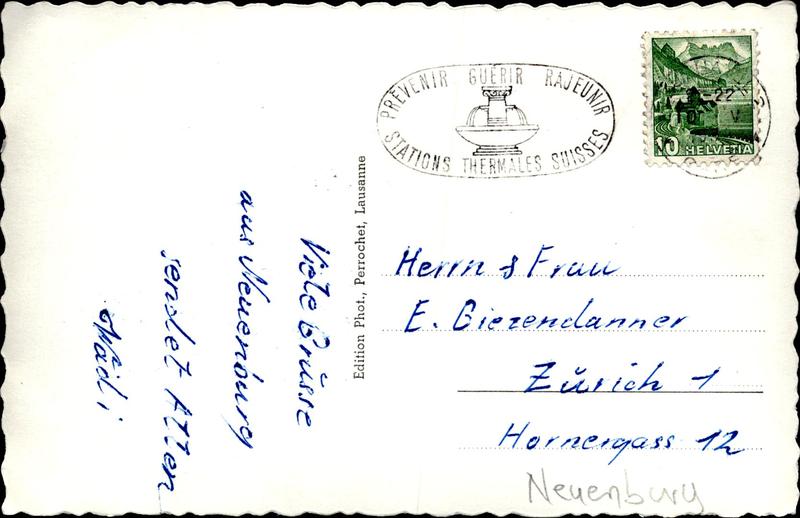 Viele Grüsse
aus Neuenburg
sendet Allen
Hädi
Edition Phot., Perrochet, Lausanne
PRÉVENIR GUÉRIR RAJEUNIR
STATIONS THERMALES SUISSES
10 HELVETIA
Herrn & Frau
E. Giezendanner
Zürich 1
Hornergass 12
Neuenburg